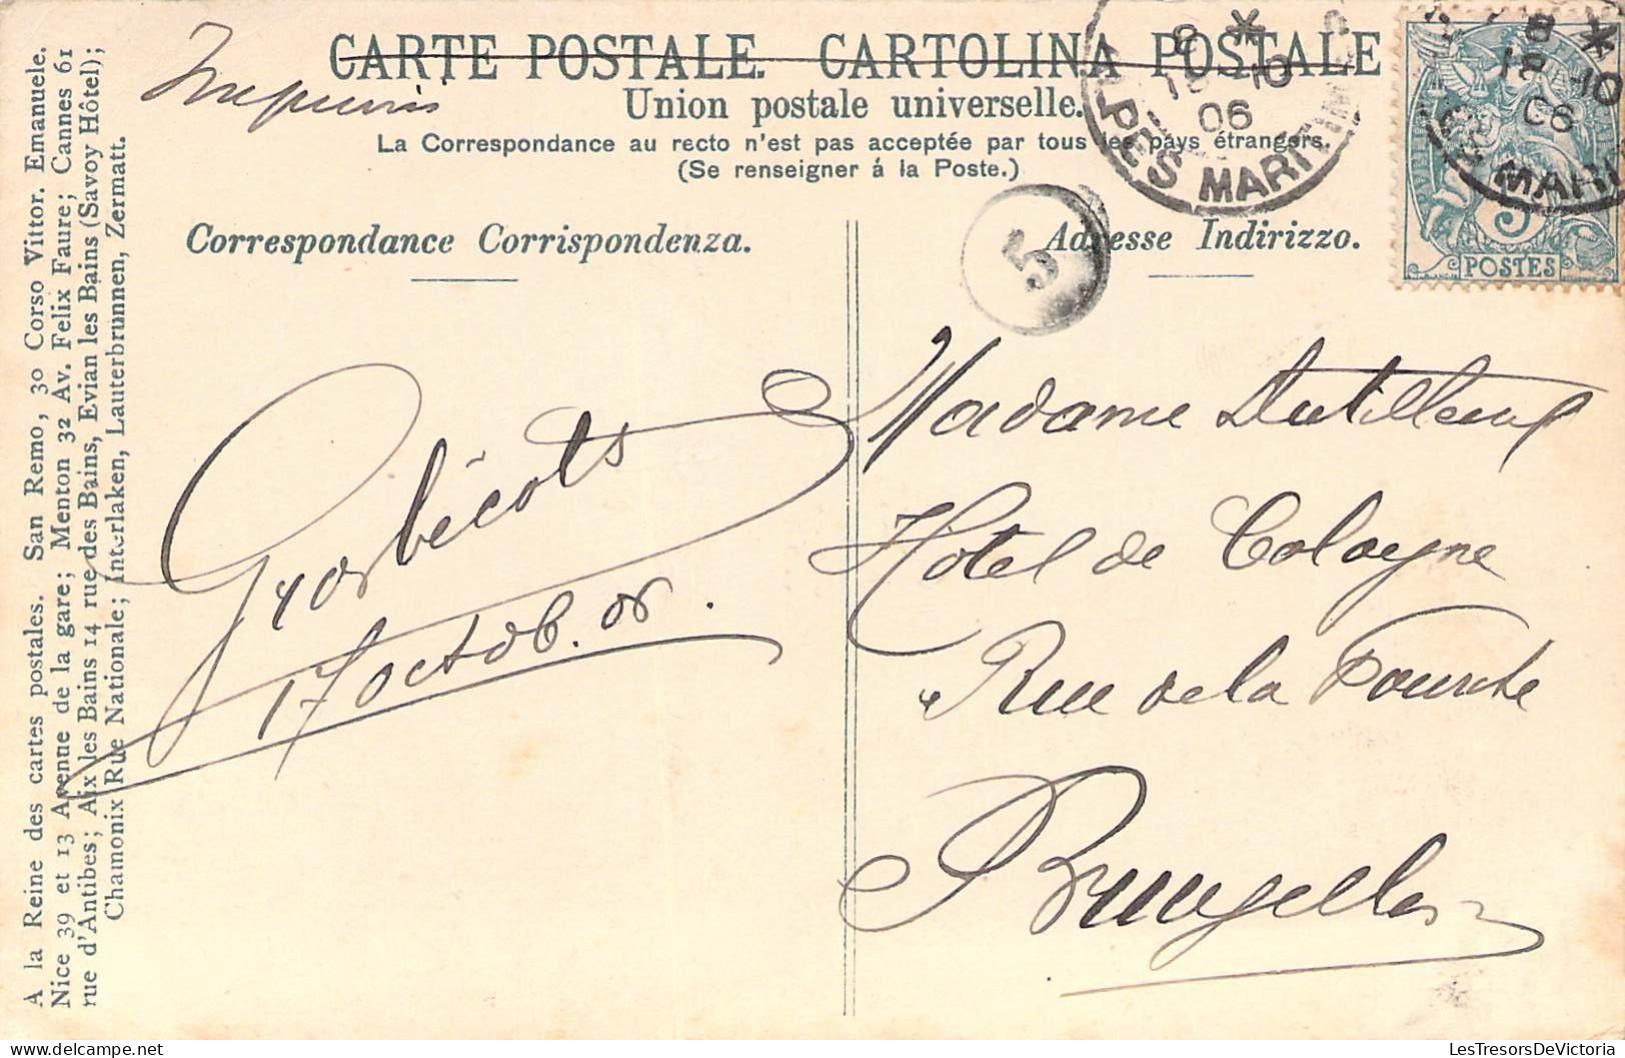 CARTE POSTALE. CARTOLINA POSTALE
Union postale universelle.
La Correspondance au recto n'est pas acceptée par tous les pays étrangers.
(Se renseigner á la Poste.)
Imprimés
8 *
18 -10
06
ALPES MARITIMES
8 *
18 -10
06
MARI
5
POSTES
Correspondance Corrispondenza.
Adresse Indirizzo.
5
A la Reine des cartes postales. San Remo, 30 Corso Vittor. Emanuele.
Nice 39 et 13 Avenne de la gare; Menton 32 Av. Felix Faure; Cannes 61
rue d'Antibes; Aix les Bains 14 rue des Bains, Evian les Bains (Savoy Hôtel);
Chamonix Rue Nationale; Interlaken, Lauterbrunnen, Zermatt.
bécots
17 octob. 06.
Madame Dutilleux
Hôtel de Cologne
Rue de la Fourche
Bruxelles
LesTresorsDeVictoria